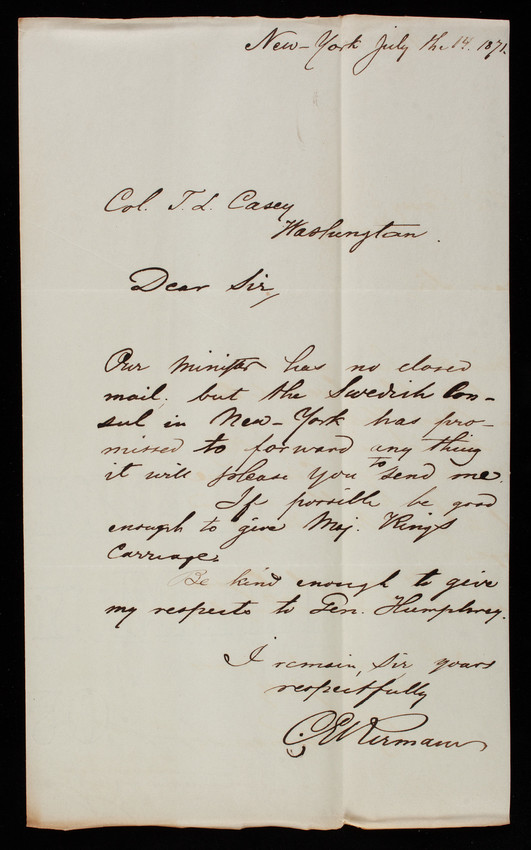 New-York July the 14. 1871.
Col. T. L. Casey
Washington.
Dear Sir,
Our minister has no closed
mail; but the Swedish Con-
sul in New-York has pro-
missed to forward any thing
it will please you to send me.
If possible be good
enough to give Maj. King's
Carriages
Be kind enough to give
my respects to Gen. Humphrey.
I remain, Sir, yours
respectfully